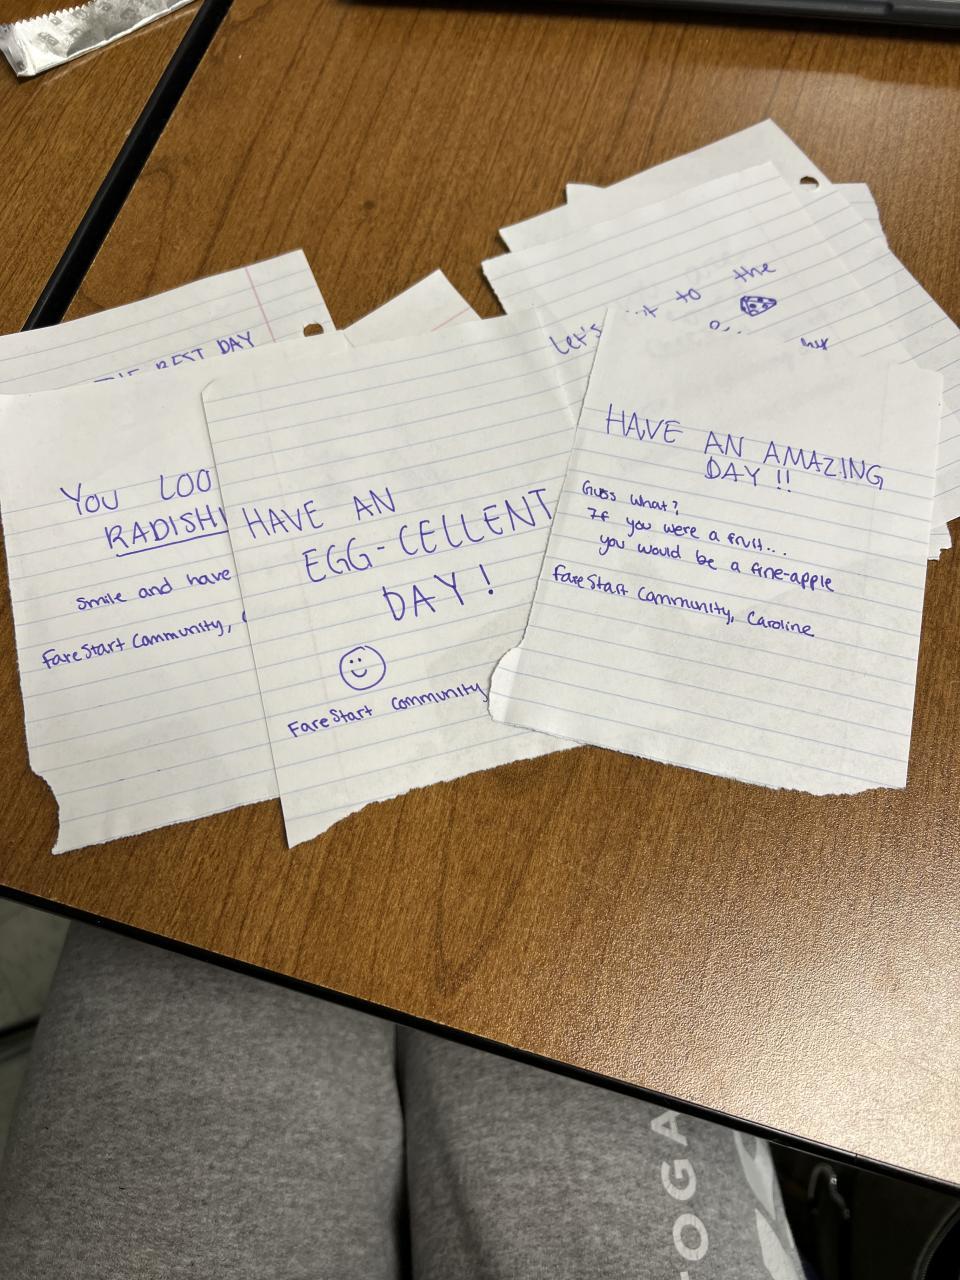 BEST DAY
YOU LOO
RADISH
smile and have
FareStart Community,
HAVE AN
EGG-CELLENT
DAY!
FareStart Community
Let's
to the
HAVE AN AMAZING
DAY!!
Guess what?
If you were a fruit...
you would be a fine-apple
FareStart Community, Caroline
OGA